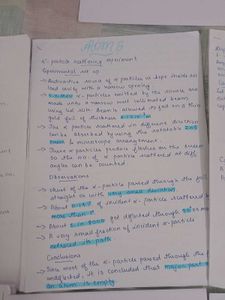 ATOMS
α-particle scattering experiment
Experimental set up
Radioactive source of α-particles is kept inside an
lead cavity with a narrow opening
α-particles emitted by the source are
made into a narrow well collimated beam
using led with slits allowed to fall on a thin
gold foil of thickness
The α-particles scattered in different direction
can be observed by using the rotatable ZnS
screen & microscope arrangement.
These α-particles produce flashes on the screen
So the no. of α-particles scattered at diff
angles can be counted
Observations
Most of the α-particles passed through the foil
straight or with very small deviation
About 0.14% of incident α-particles scattered by
more than 1°
About 1 in 8000 get deflected through 90° or more
A very small fraction of incident α-particles
retraced its path
Conclusions
Since most of the α-particles passed through the
undeflected. It is concluded that major part of
an atom is empty